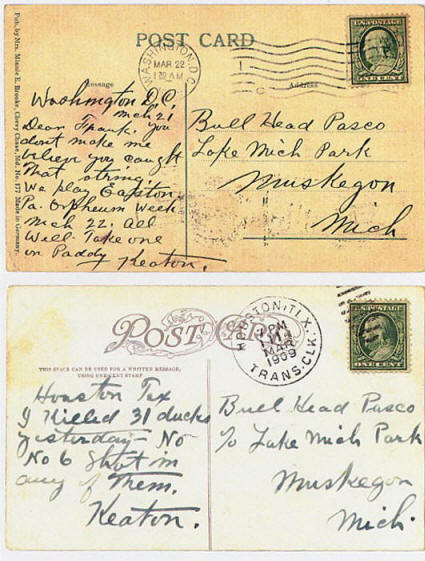 Pub. by Mrs. Minnie E. Brooke, Chevy Chase, Md. No. 177 Made in Germany.
POST CARD
WASHINGTON, D.C.
MAR 22
AM
U.S. POSTAGE
ONE CENT
Message
Address
Washington D.C.
Mch 21
Dear Frank. You
dont make me
believe you caught
That string.
We play Easton
Pa. Orpheum Week
Mch 22. All
Well. Take one
on Paddy
Keaton.
Bull Head Pasco
Lake Mich Park
Muskegon
Mich
POST CARD
HOUSTON, TEX.
PM
MAR
1909
TRANS. CLK.
U.S. POSTAGE
ONE CENT
THIS SPACE CAN BE USED FOR A WRITTEN MESSAGE,
USING ONE CENT STAMP
Houston Tex
I Killed 31 ducks
yesterday - No
No 6 Shot in
any of Them.
Keaton.
Bull Head Pasco
% Lake Mich Park
Muskegon
Mich.